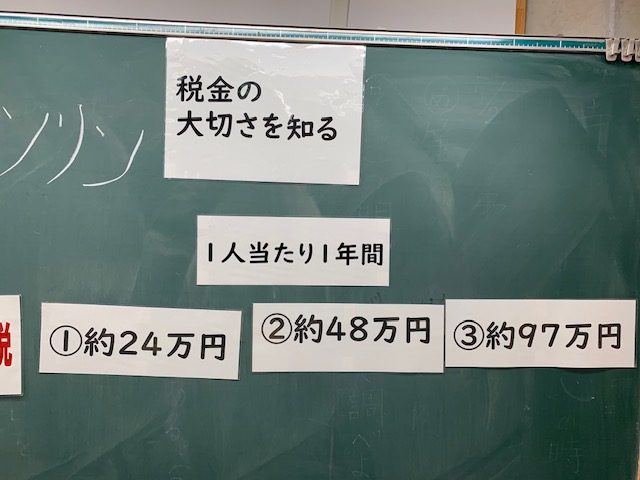 税金の
大切さを知る
ンリン
1人当たり1年間
税
①約24万円
②約48万円
③約97万円